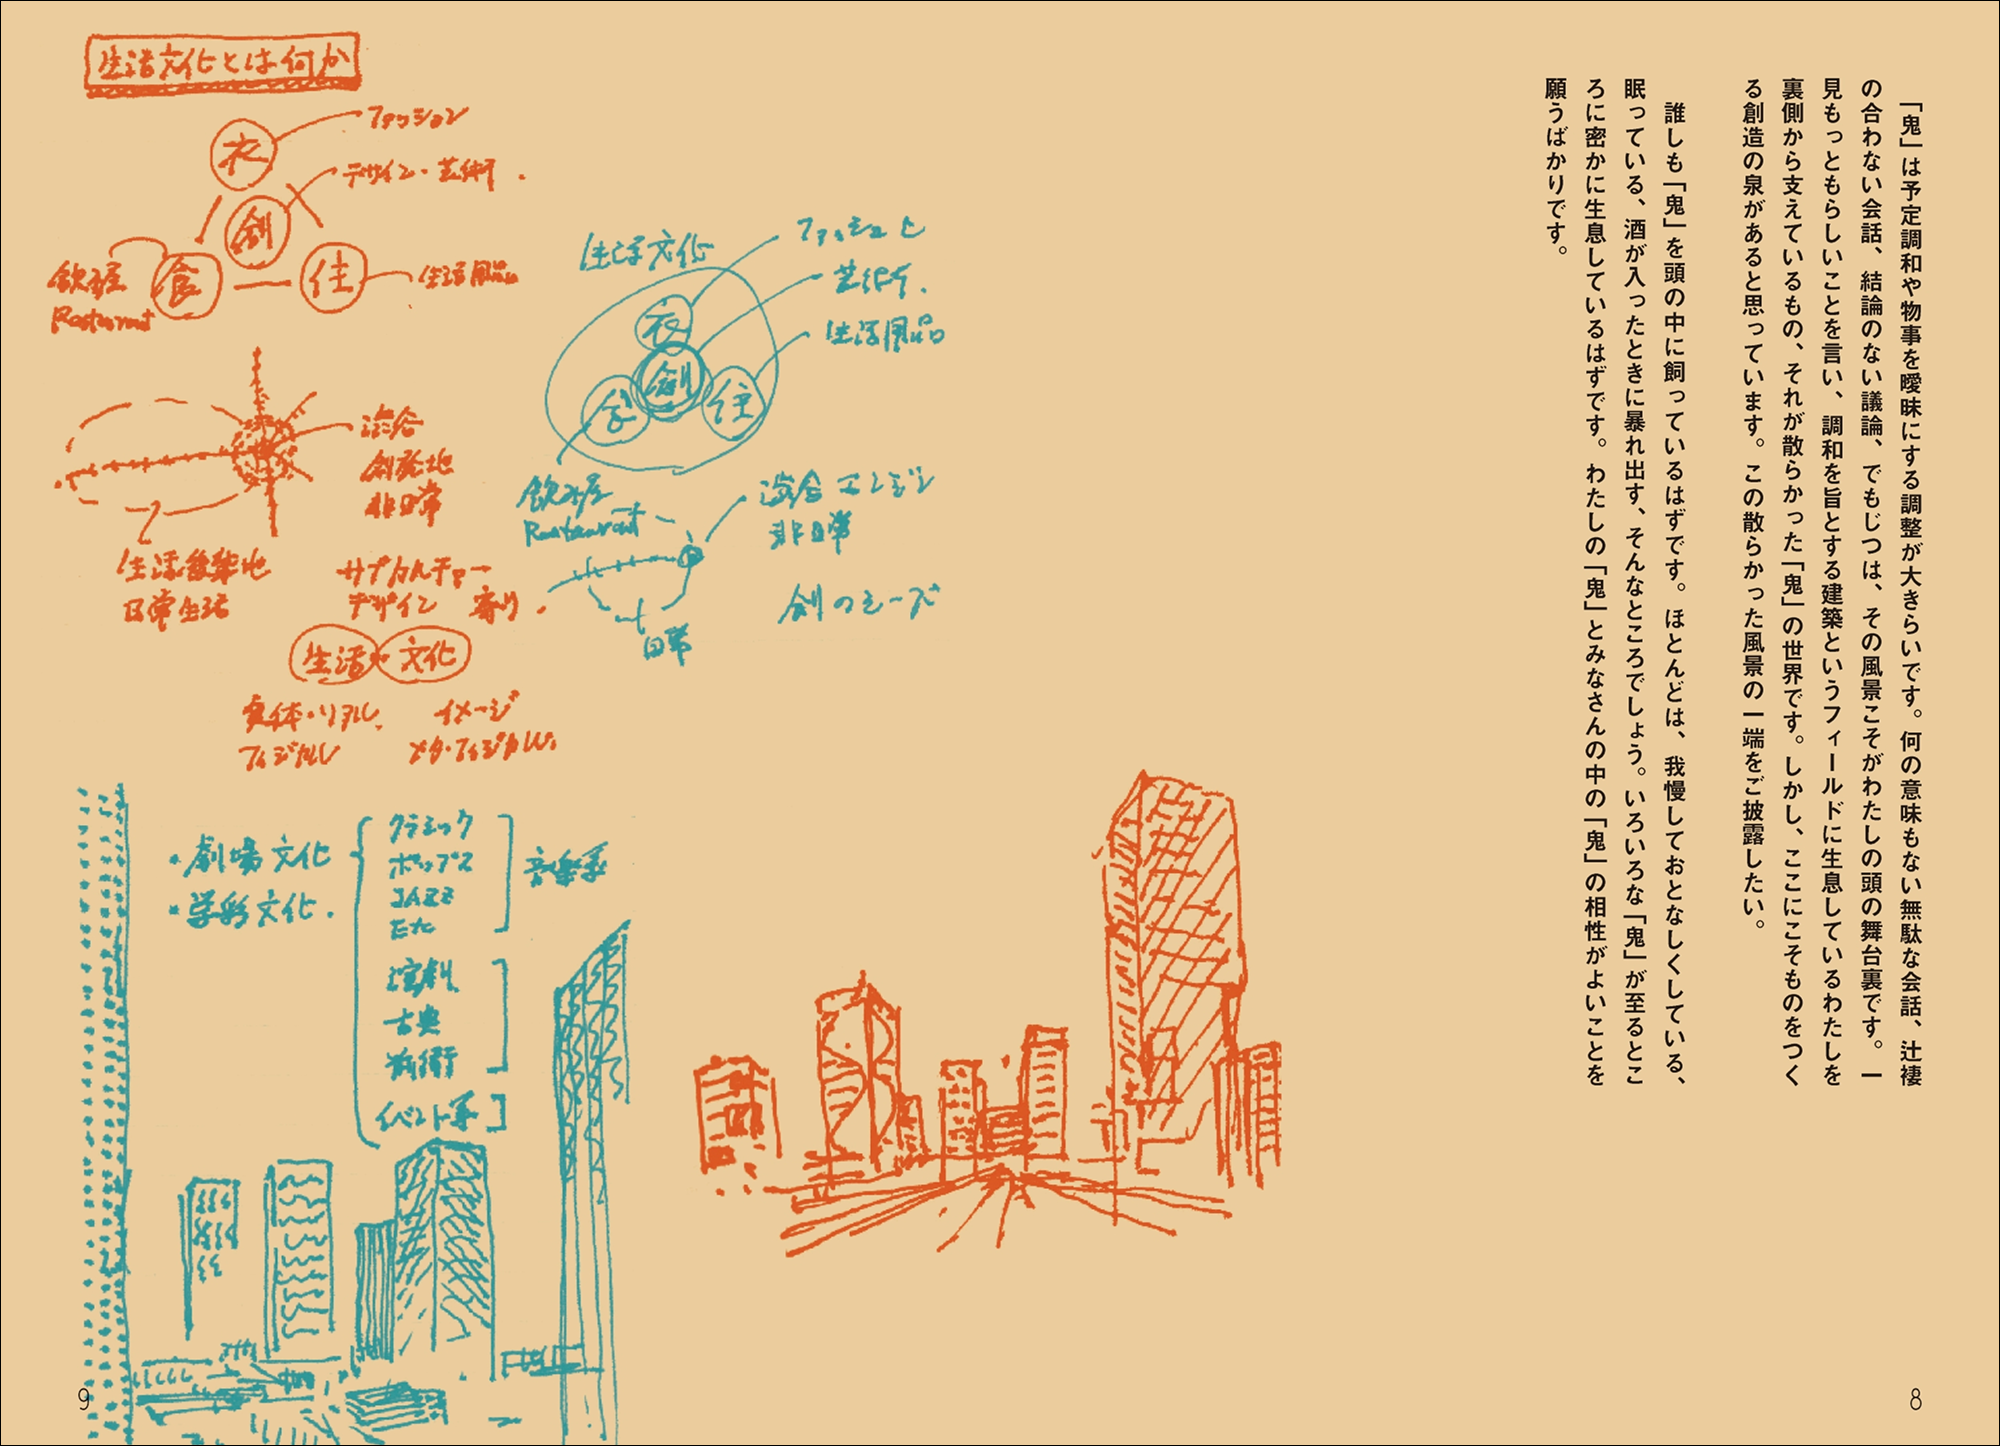 「鬼」は予定調和や物事を曖昧にする調整が大きらいです。何の意味もない無駄な会話、辻褄
の合わない会話、結論のない議論、でもじつは、その風景こそがわたしの頭の舞台裏です。一
見もっともらしいことを言い、調和を旨とする建築というフィールドに生息しているわたしを
裏側から支えているもの、それが散らかった「鬼」の世界です。しかし、ここにこそものをつく
る創造の泉があると思っています。この散らかった風景の一端をご披露したい。
誰しも「鬼」を頭の中に飼っているはずです。ほとんどは、我慢しておとなしくしている、
眠っている、酒が入ったときに暴れ出す、そんなところでしょう。いろいろな「鬼」が至るとこ
ろに密かに生息しているはずです。わたしの「鬼」とみなさんの中の「鬼」の相性がよいことを
願うばかりです。
8
生活文化とは何か
ファッション
衣
デザイン・芸術.
創
食
住
飲み屋
Restaurant
生活用品
渋谷
創発地
非日常
日常生活
サブカルチャー
デザイン 寄り.
生活 文化
実体・リアル
フィジカル
イメージ
メタ・フィジカル
生活文化
衣
創
住
生活用品
飲み屋
Restaurant
渋谷エンジン
非日常
日常
創のシーズ
・劇場文化
クラシック
ポップス
JAZZ
Etc
音楽系
演劇
古典
前衛
イベント系
9